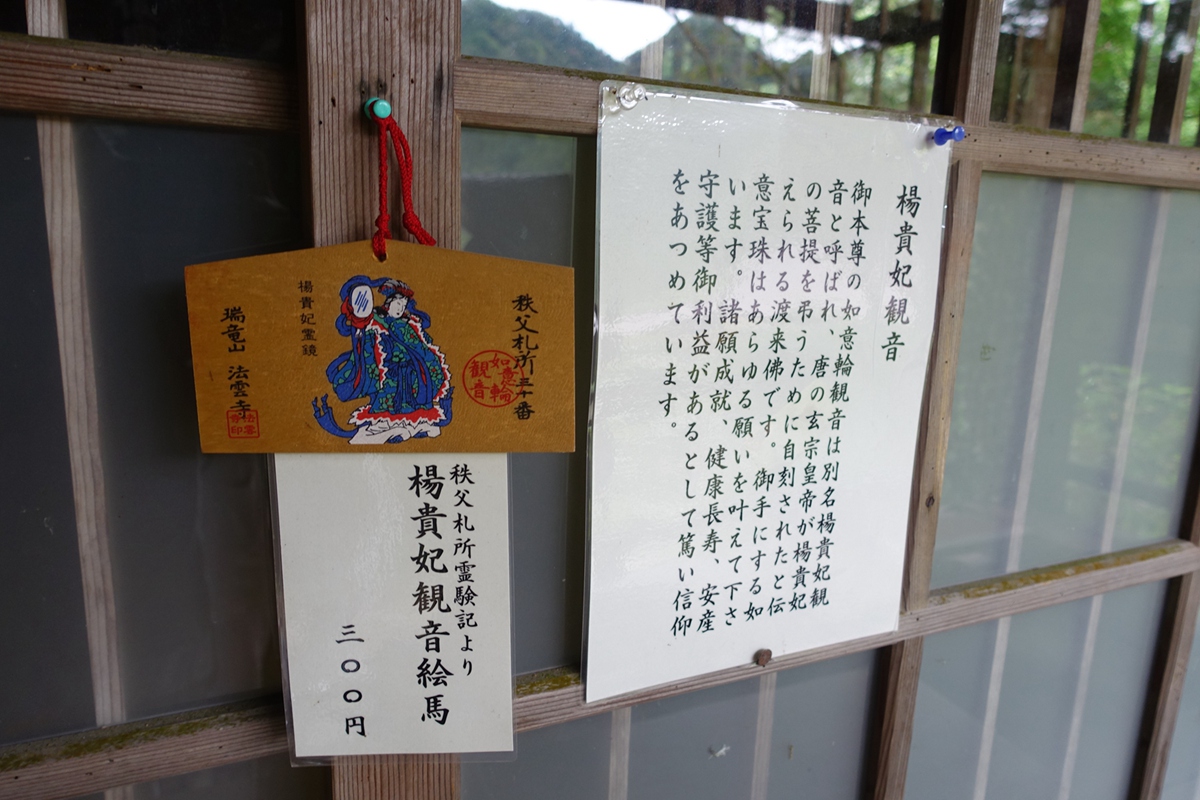 楊貴妃観音
御本尊の如意輪観音は別名楊貴妃観
音と呼ばれ、唐の玄宗皇帝が楊貴妃
の菩提を弔うために自刻されたと伝
えられる渡来佛です。御手にする如
意宝珠はあらゆる願いを叶えて下さ
います。諸願成就、健康長寿、安産
守護等御利益があるとして篤い信仰
をあつめています。
秩父札所三十番
如意輪
観音
楊貴妃霊鏡
瑞竜山 法雲寺
秩父札所霊験記より
楊貴妃観音絵馬
三〇〇円